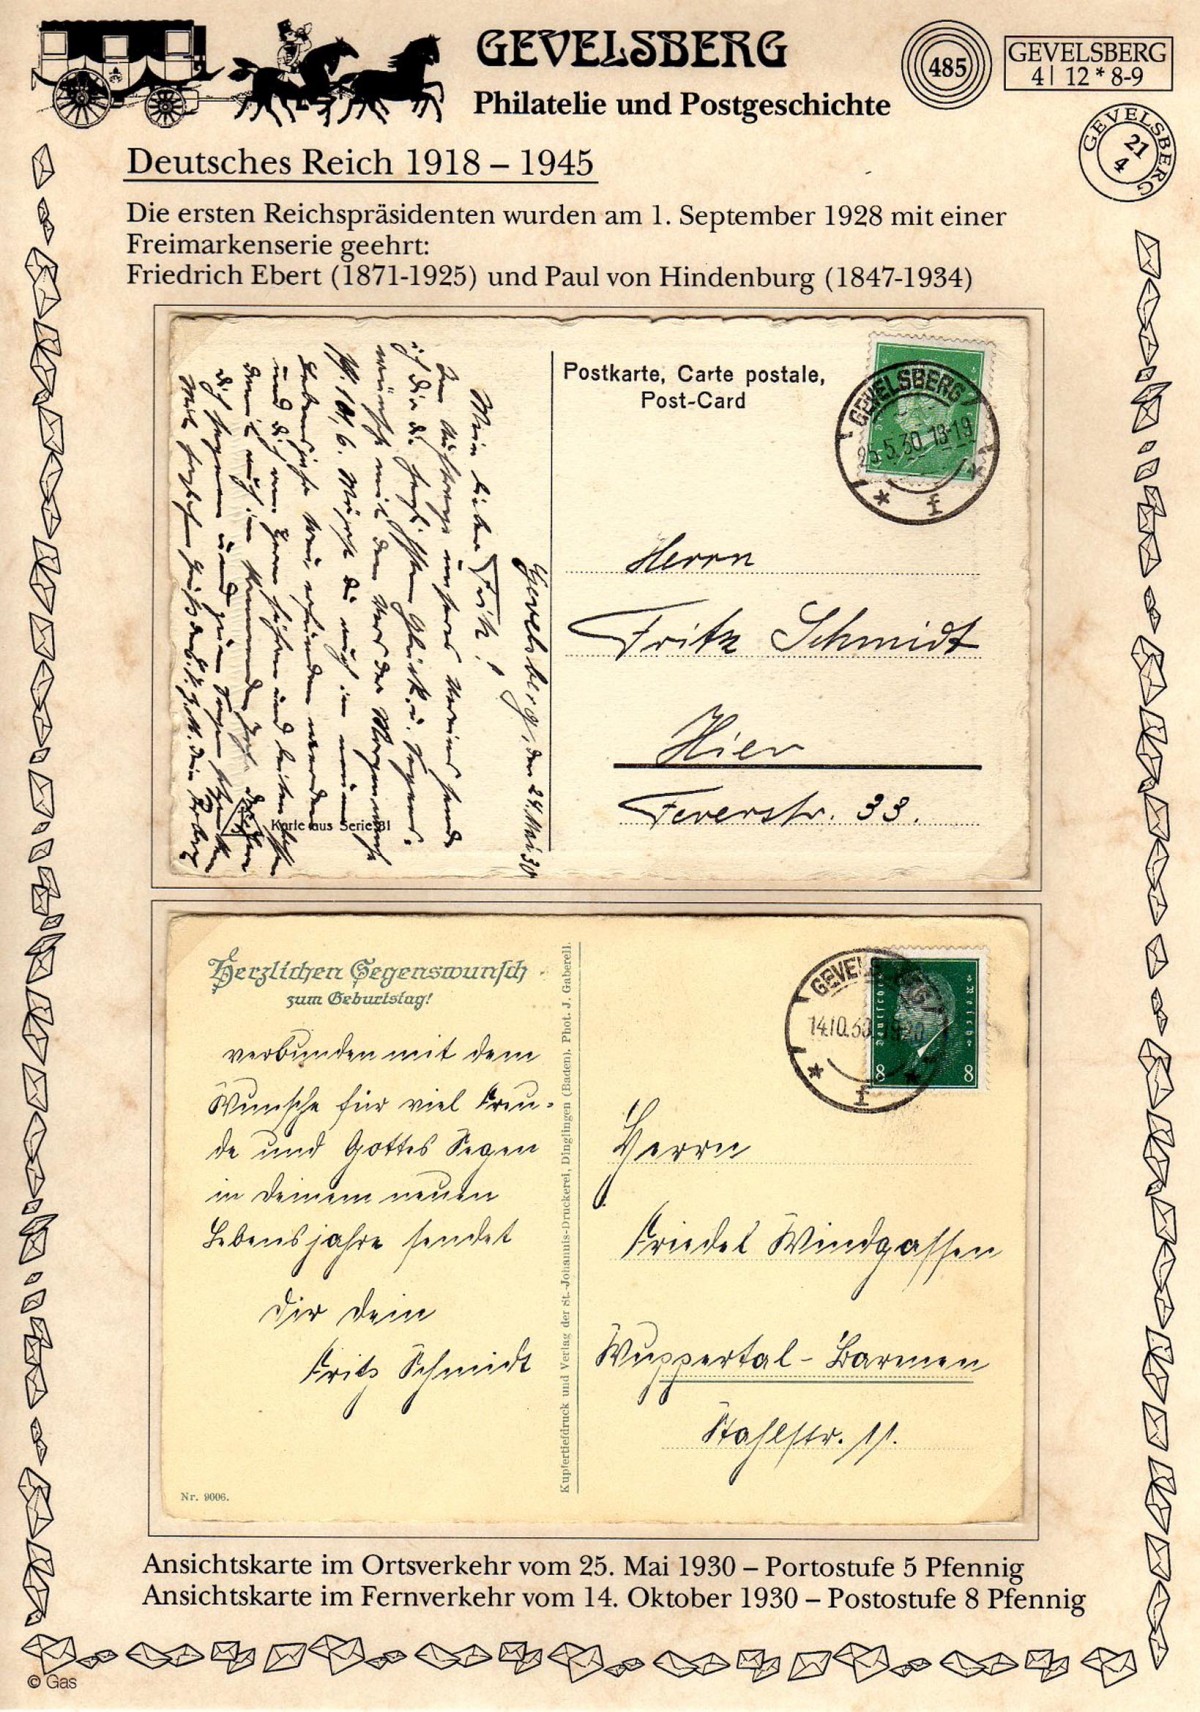 GEVELSBERG
Philatelie und Postgeschichte
485
GEVELSBERG
4| 12 * 8-9
GEVELSBERG
21
4
GEVELSBERG
Deutsches Reich 1918 – 1945
Die ersten Reichspräsidenten wurden am 1. September 1928 mit einer
Freimarkenserie geehrt:
Friedrich Ebert (1871-1925) und Paul von Hindenburg (1847-1934)
Gevelsberg, den 24. Mai 30
Mein lieber Fritz!
Im Auftrage unseres Vereins sende
ich dir die herzlichsten Glück u. Segens-
wünsche mit dem
und
Karte aus Serie 81
Postkarte, Carte postale,
Post-Card
GEVELSBERG
25.5.30.18-19
* f *
Herrn
Fritz Schmidt
Hier
Feverstr. 33.
Herzlichen Segenswunsch
zum Geburtstag!
verbunden mit dem
Wunsche für viel Freu-
de und Gottes Segen
in Deinem neuen
Lebensjahre sendet
Dir Dein
Fritz Schmidt
Nr. 9006.
Kupfertiefdruck und Verlag der St.-Johannis-Druckerei, Dinglingen (Baden). Phot. J. Gaberell.
GEVELSBERG
14.10.30.19-20
* f *
Deutsches Reich
8 8
Herrn
Friedel Windgassen
Wuppertal-Barmen
Stahlstr. 11.
Ansichtskarte im Ortsverkehr vom 25. Mai 1930 – Portostufe 5 Pfennig
Ansichtskarte im Fernverkehr vom 14. Oktober 1930 – Postostufe 8 Pfennig
© Gas